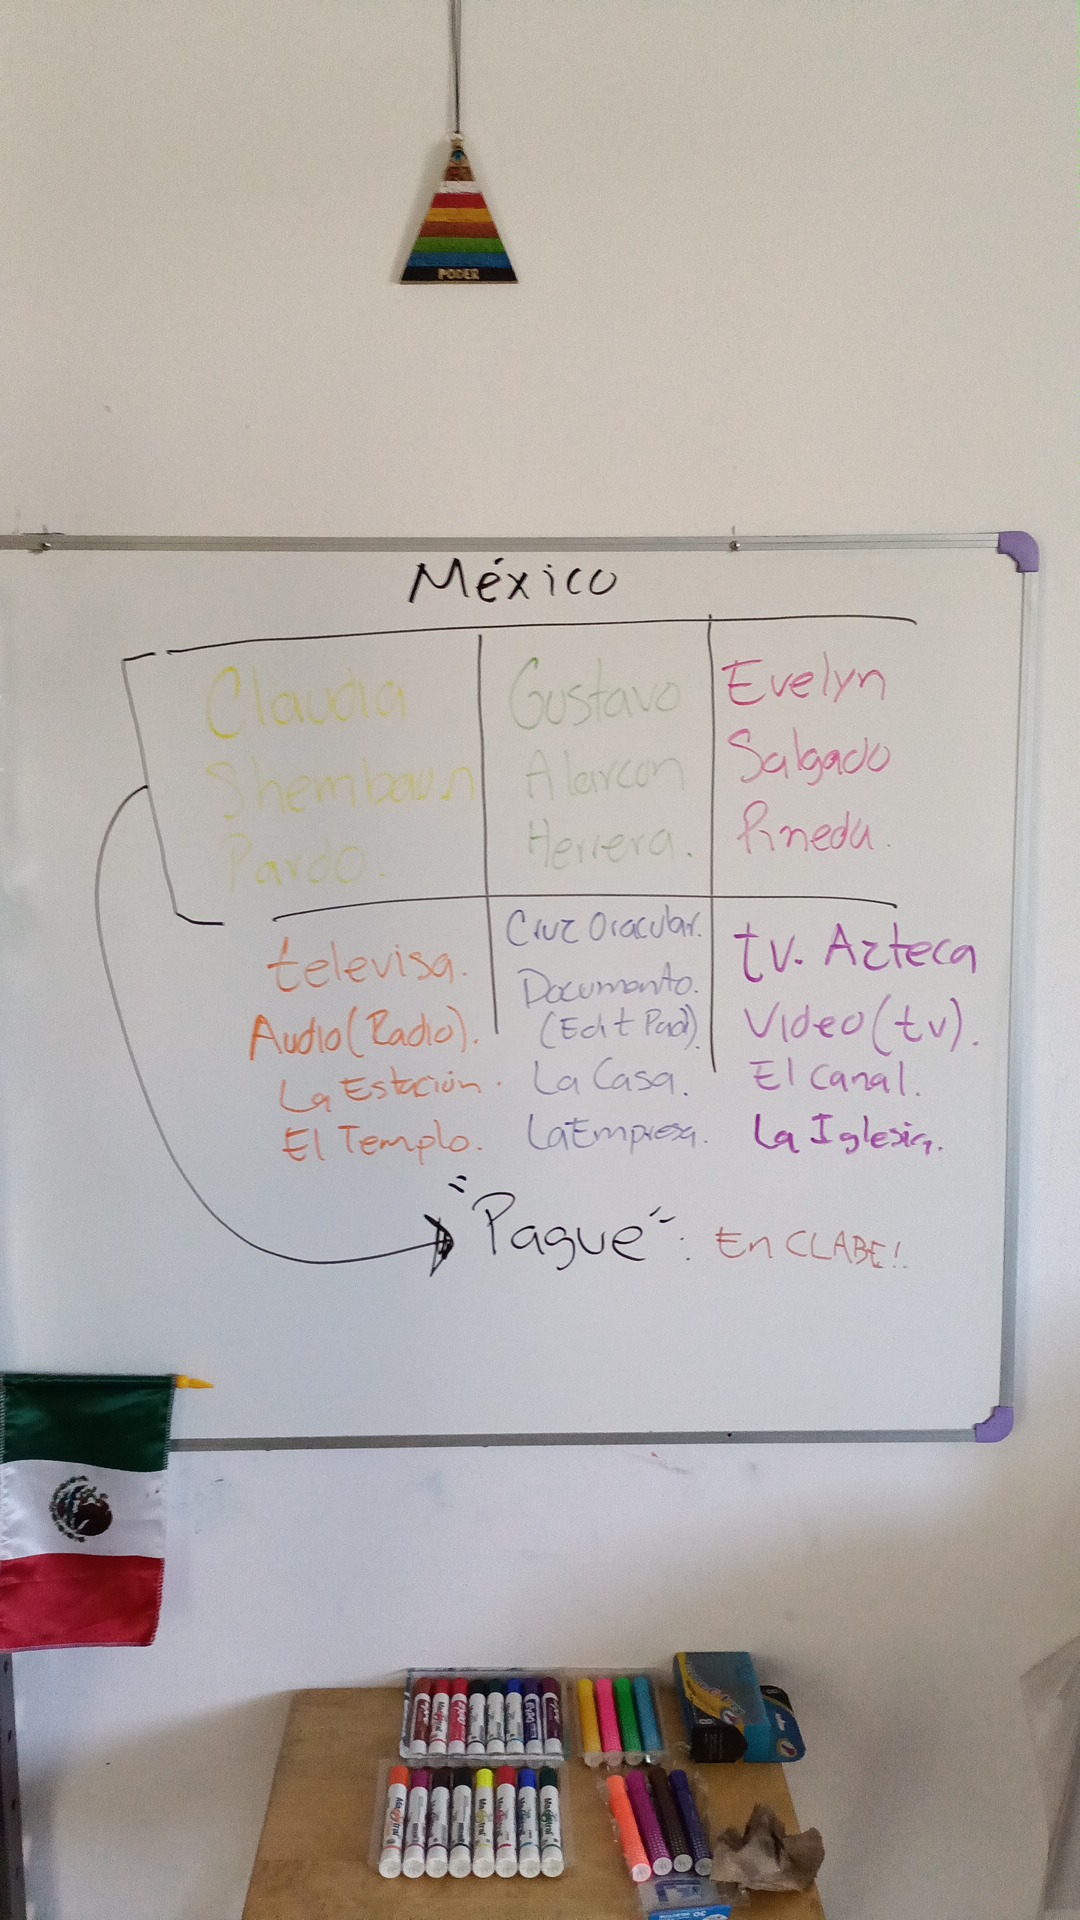 PODER
México
Claudia
Shembaun
Pardo.
Gustavo
Alarcon
Herrera.
Evelyn
Salgado
Pineda.
televisa.
Audio (Radio).
La Estación.
El Templo.
Cruz Oracular.
Documento.
(Edit Pad).
La Casa.
La Empresa.
tv. Azteca
Video (tv).
El Canal.
La Iglesia.
"Pague": En CLABE!.